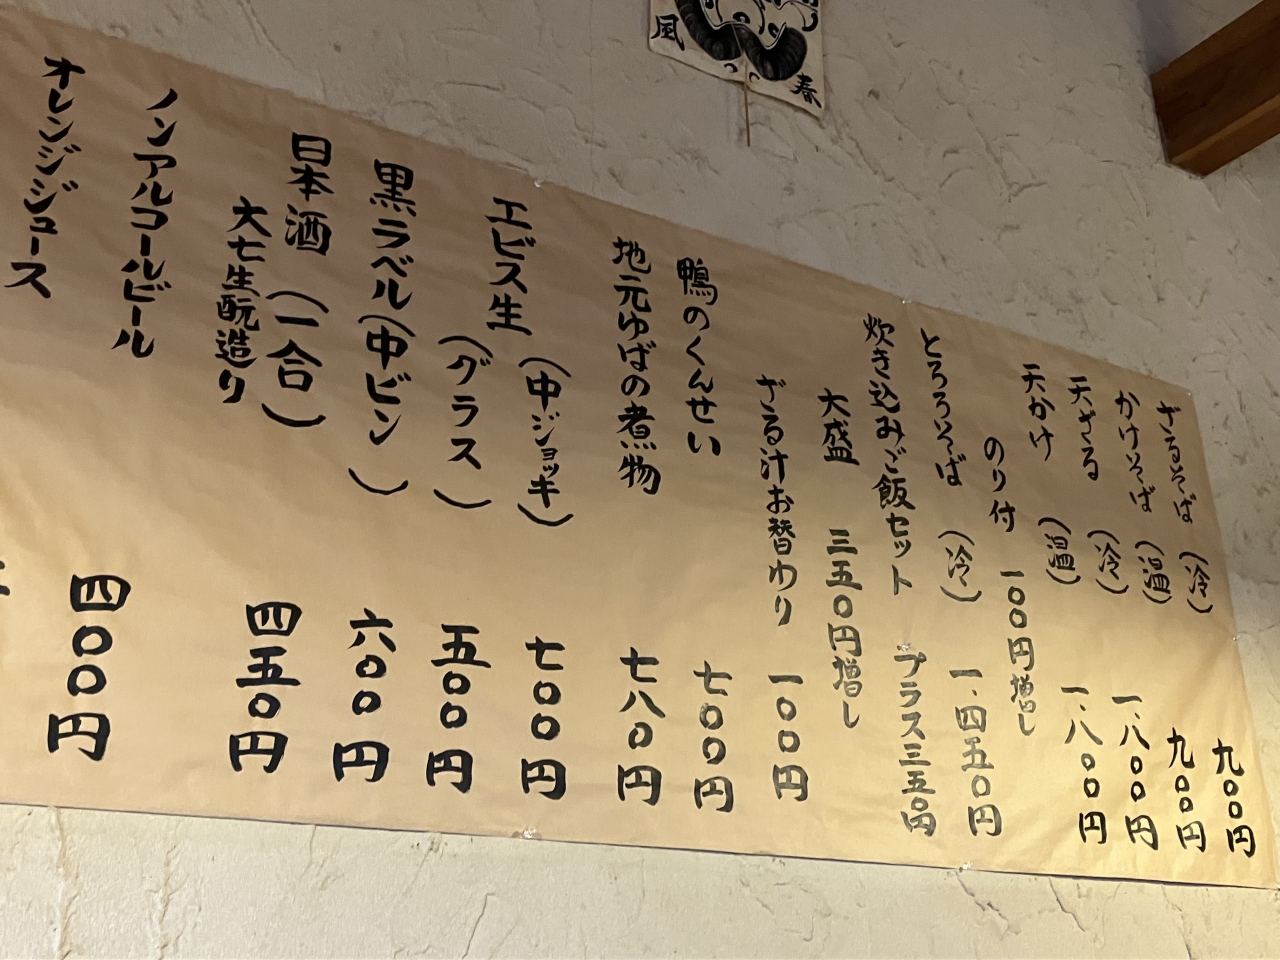 風
春
ざるそば (冷) 九〇〇円
かけそば (温) 九〇〇円
天ざる (冷) 一、八〇〇円
天かけ (温) 一、八〇〇円
のり付 一〇〇円増し
とろろそば (冷) 一、四五〇円
炊き込みご飯セット プラス三五〇円
大盛 三五〇円増し
ざる汁お替わり 一〇〇円
鴨のくんせい 七〇〇円
地元ゆばの煮物 七八〇円
エビス生 (中ジョッキ) 七〇〇円
(グラス) 五〇〇円
黒ラベル(中ビン) 六〇〇円
日本酒 (一合) 四五〇円
大七生酛造り
ノンアルコールビール 四〇〇円
オレンジジュース